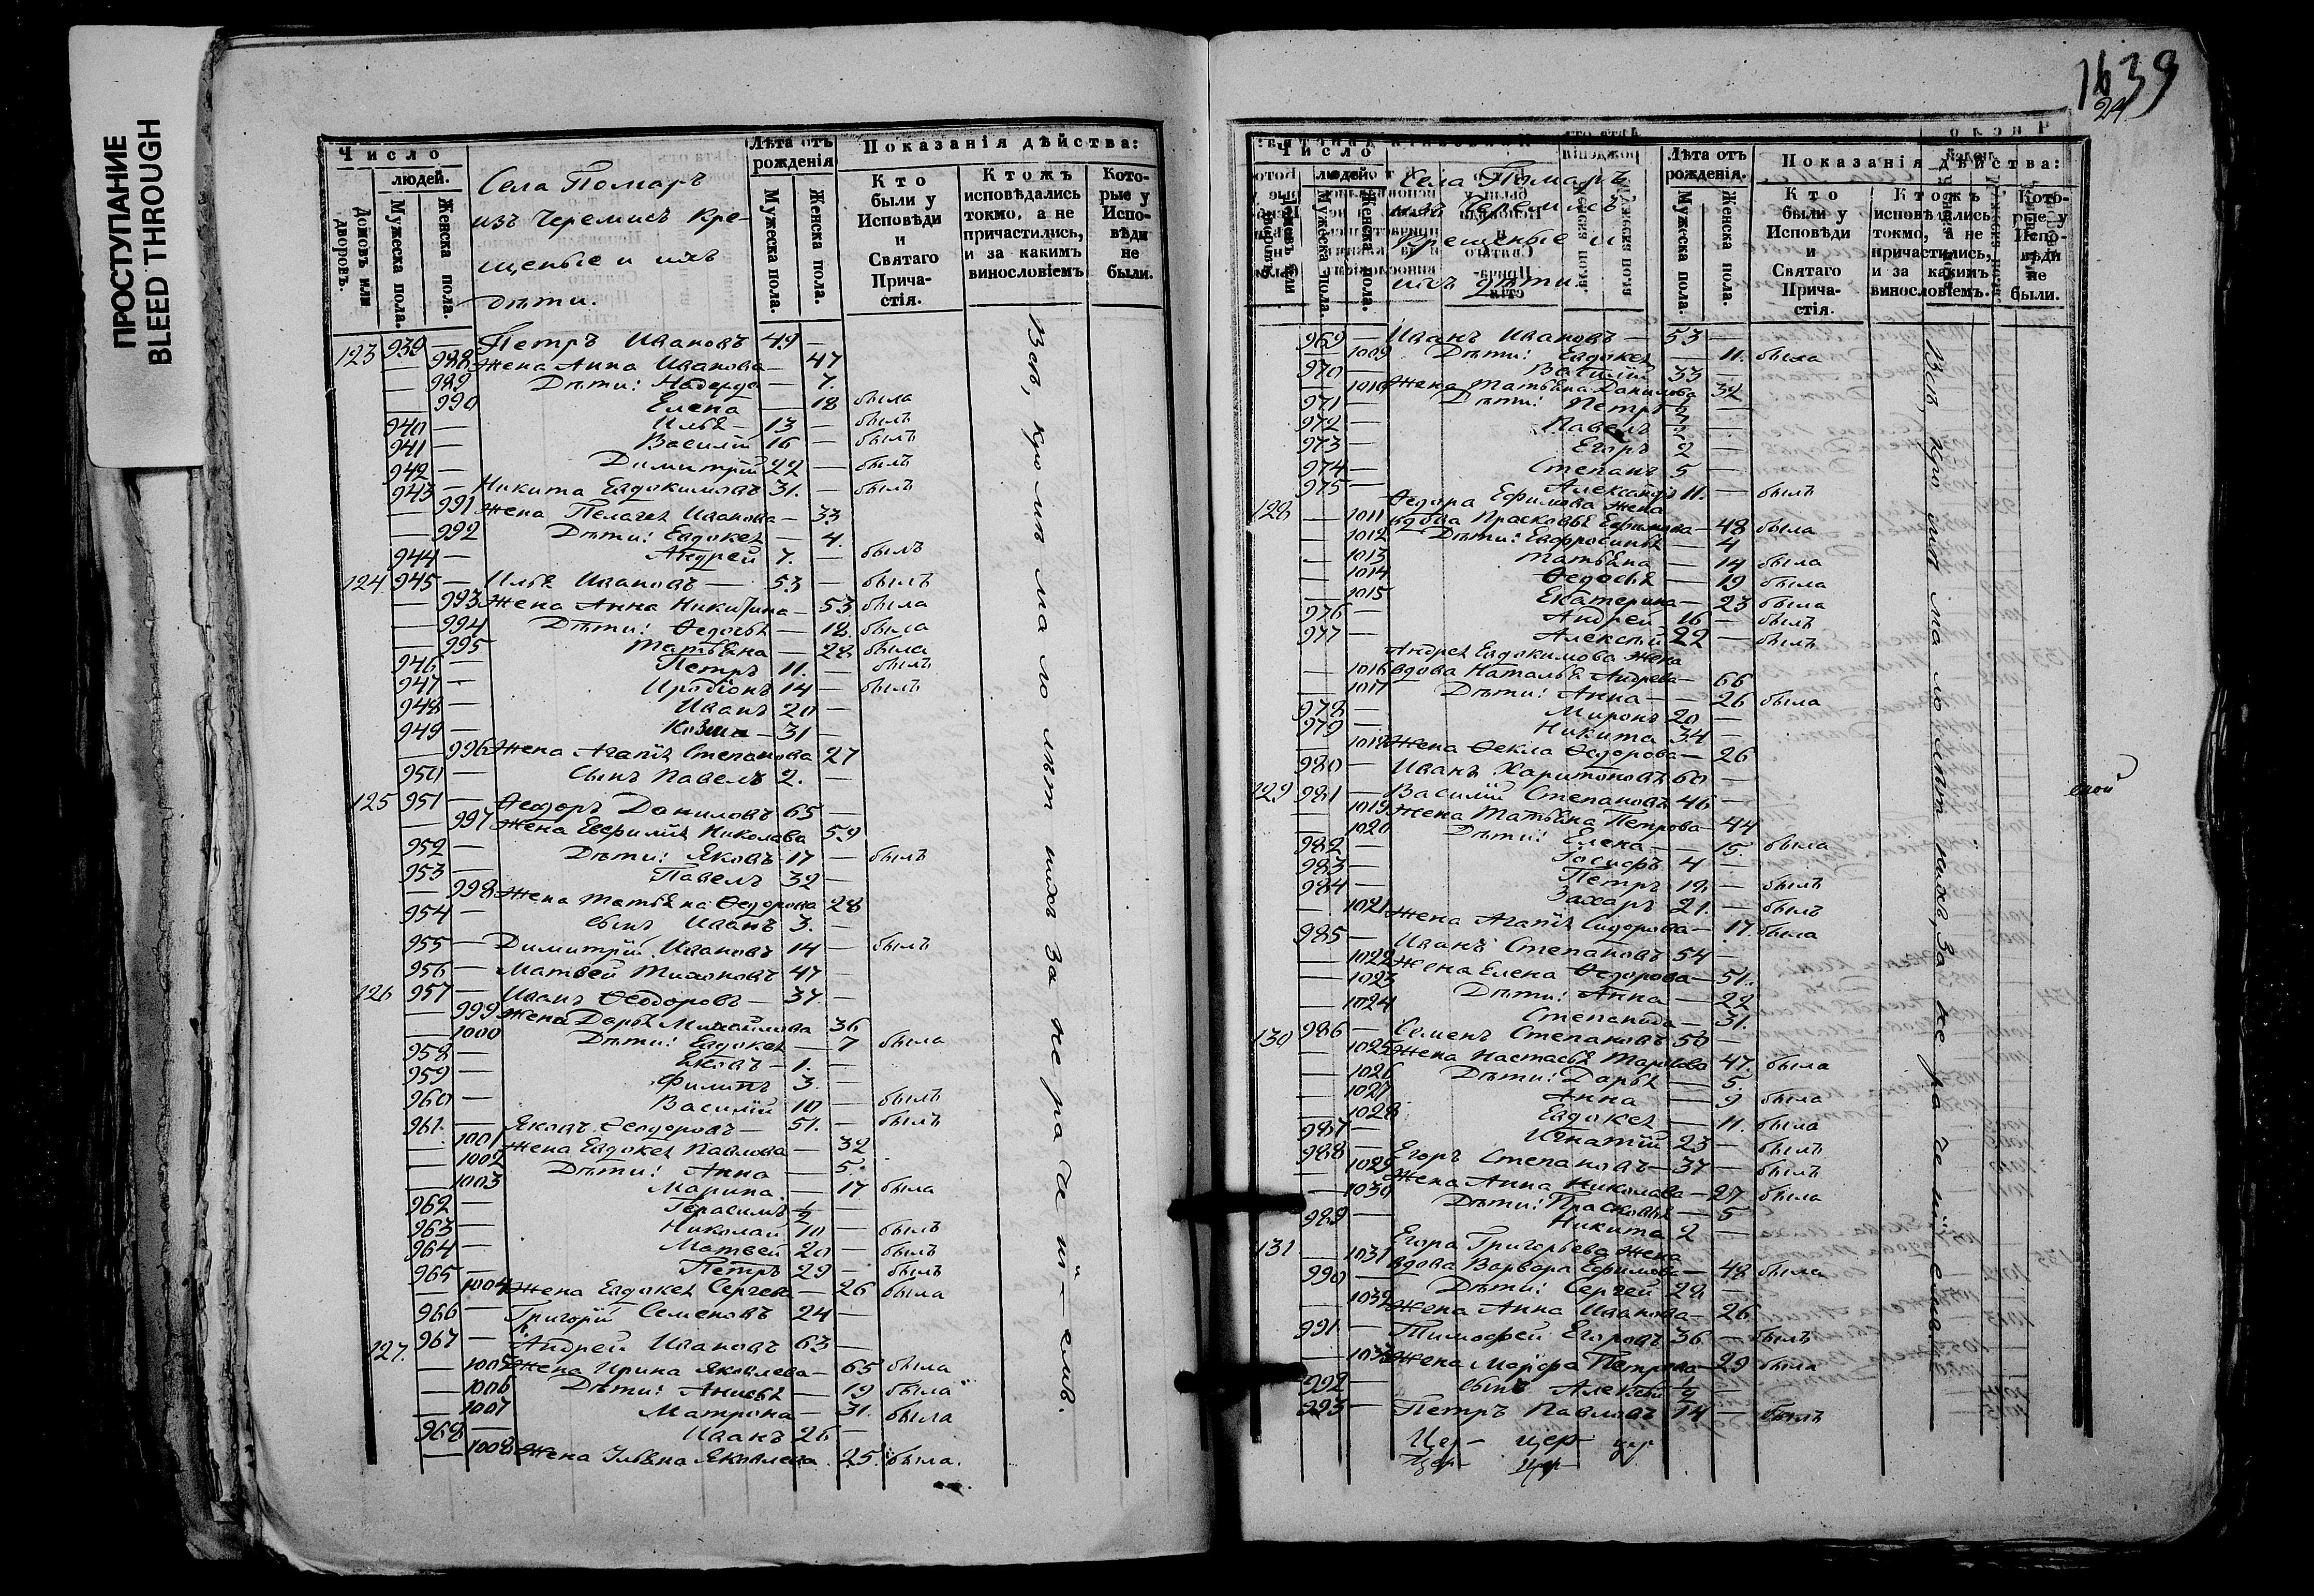 ПРОСТУПАНИЕ
BLEED THROUGH
Число
людей.
Домовъ или дворовъ.
Мужеска пола.
Женска пола.
Села Помаръ
изъ Черемисъ кре-
щеные и ихъ
дѣти.
Лѣта отъ рожденія
Мужеска пола.
Женска пола.
Показанія дѣйства:
Кто были у Исповѣди и Святаго Прича-стія.
Ктожъ исповѣдались токмо, а не причастились, и за какимъ винословіемъ
Кото-рые у Испо-вѣди не были.
123 939 — Петръ Ивановъ 49 —
— 988 Жена Анна Иванова — 47
— 989 Дѣти: Надежда — 7.
— 990 Елена — 18 была
940 — Илья — 13 — былъ
941 — Василій 16 — былъ
942 — Димитрій 22 — былъ
943 — Никита Евдокимовъ 31. — былъ
— 991 Жена Пелагея Иванова — 33
— 992 Дѣти: Евдокея — 4.
944 — Андрей 7. — былъ
124 945 — Илья Ивановъ — 53 — былъ
— 993 Жена Анна Никитина — 53 была
— 994 Дѣти: Ѳедосья — 18. была
— 995 Татьяна — 28 была
946 — Петръ 11. — былъ
947 — Иродіонъ 14 — былъ
948 — Иванъ 20 —
949 — Козма — 31 —
— 996 Жена Агапія Степанова 27
950 — Сынъ Павелъ 2. —
125 951 — Ѳеодоръ Даниловъ 65 —
— 997 Жена Евфимія Николаева 59
952 — Дѣти: Яковъ 17 — былъ
953 — Павелъ 32 —
— 998 Жена Татьяна Ѳедорова 28
954 — сынъ Иванъ 3. —
955 — Димитрій Ивановъ 14 — былъ
956 — Матвей Тихоновъ 47 —
126 957 — Иванъ Ѳеодоровъ — 37. —
— 999 Жена Дарья Михайлова 36
— 1000 Дѣти: Евдокея — 7 была
958 — Яковъ — 1. —
959 — Филипъ 3. —
960 — Василій 10 — былъ
961. — Яковъ Ѳеодоровъ — 51. — былъ
— 1001 Жена Евдокея Павлова — 32
— 1002 Дѣти: Анна — 5.
— 1003 Марина — 17 была
962 — Герасимъ ½ —
963 — Николай 10 — былъ
964 — Матвей 20 — былъ
965 — Петръ 29 — былъ
— 1004 Жена Евдокея Сергева — 26 была
966 — Григорій Семеновъ 24 —
127. 967 — Андрей Ивановъ 63 —
— 1005 Жена Ирина Яковлева — 65 была
— 1006 Дѣти: Анисья — 19 была
— 1007 Матрона — 31. была
968 — Иванъ 26 —
— 1008 Жена Ульяна Яковлева 25. была.
Всѣ, кромѣ малолѣтнихъ за нераченіемъ.
1639
24
Число
людей
Домовъ или дворовъ.
Мужеска пола.
Женска пола.
Села Помаръ
изъ Черемисъ
Крещеные и
ихъ дѣти.
Лѣта отъ рожденія.
Мужеска пола.
Женска пола.
Показанія дѣйства:
Кто были у Исповѣди и Святаго Прича-стія.
Ктожъ исповѣдались токмо, а не причастились, и за какимъ винословіемъ.
Кото-рые у Испо-вѣди не были.
969 — Иванъ Ивановъ — 53 —
— 1009 Дѣти: Евдокея — 11. была
970 — Василій 33 —
— 1010 Жена Татьяна Данилова 32
971 — Дѣти: Петръ ½ —
972 — Павелъ ½ —
973 — Егоръ 2 —
974 — Степанъ 5 —
975 — Александръ 11. — былъ
128 Ѳедора Ефимова жена
— 1011 вдова Прасковья Ефимова — 48 была
— 1012 Дѣти: Евфросинья — 4
— 1013 Татьяна — 14 была
— 1014 Ѳедосья — 19 была
— 1015 Екатерина — 23 была
976 — Андрей 16 — былъ
977 — Алексѣй 22 — былъ
Андрея Евдокимова жена
— 1016 вдова Наталья Андрева — 66
— 1017 Дѣти: Анна — 26 была
978 — Миронъ 20 —
979 — Никита 34 —
— 1018 Жена Ѳекла Ѳедорова — 26
980 — Иванъ Харитоновъ 60 —
129 981 — Василій Степановъ 46 —
— 1019 Жена Татьяна Петрова — 44
— 1020 Дѣти: Елена — 15. была
982 — Іосифъ 4 —
983 — Петръ 18. — былъ
984 — Захаръ 21. — былъ
— 1021 Жена Агапія Сидорова — 17. была
985 — Иванъ Степановъ 54 —
— 1022 Жена Елена Ѳедорова — 51.
— 1023 Дѣти: Анна — 22
— 1024 Степанида — 31.
130 986 — Семенъ Степановъ 50 —
— 1025 Жена Настасья Маркова 47. была
— 1026 Дѣти: Дарья — 5.
— 1027 Анна — 9 была
— 1028 Евдокея — 11. была
987 — Игнатій 23 — былъ
988 — Егоръ Степановъ — 37 — былъ
— 1029 Жена Анна Николаева — 27 была
— 1030 Дѣти: Прасковья — 5
989 — Никита 2 —
131 Егора Григорьева жена
— 1031 вдова Варвара Ефимова — 48 была
990 — Дѣти: Сергей 28 —
— 1032 Жена Анна Иванова — 26
991 — Тимофей Егоровъ 36 — былъ
— 1033 Жена Марфа Петрова — 29 была
992 — сынъ Алексѣй ½ —
993 — Петръ Павловъ 14 — былъ
Цер- цер- цер
Цер- цер-
Всѣ, кромѣ малолѣтнихъ, за нераченіемъ